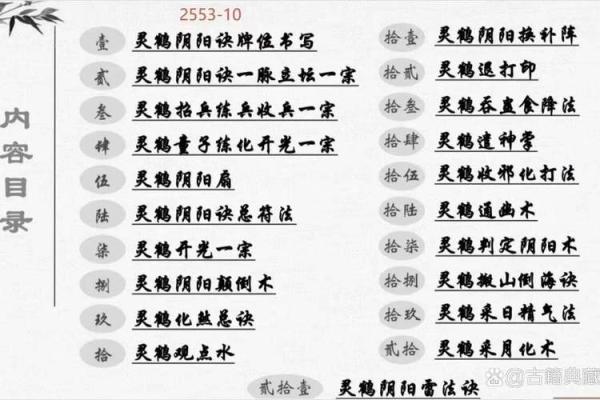 2553-10
内容目录
壹 灵鹤阴阳诀牌位书写
贰 灵鹤阴阳诀一脉立坛一宗
叁 灵鹤招兵练兵收兵一宗
肆 灵鹤童子练化开光一宗
伍 灵鹤阴阳扇
陆 灵鹤阴阳诀总符法
柒 灵鹤开光一宗
捌 灵鹤阴阳颠倒术
玖 灵鹤化煞总诀
拾 灵鹤观点水
拾壹 灵鹤阴阳换补阵
拾贰 灵鹤退打印
拾叁 灵鹤吞蛊食降法
拾肆 灵鹤遣神掌
拾伍 灵鹤收邪化打法
拾陆 灵鹤通幽术
拾柒 灵鹤判定阴阳术
拾捌 灵鹤搬山倒海诀
拾玖 灵鹤采日精气法
贰拾 灵鹤采月化术
贰拾壹 灵鹤阴阳雷法诀
@古籍典藏